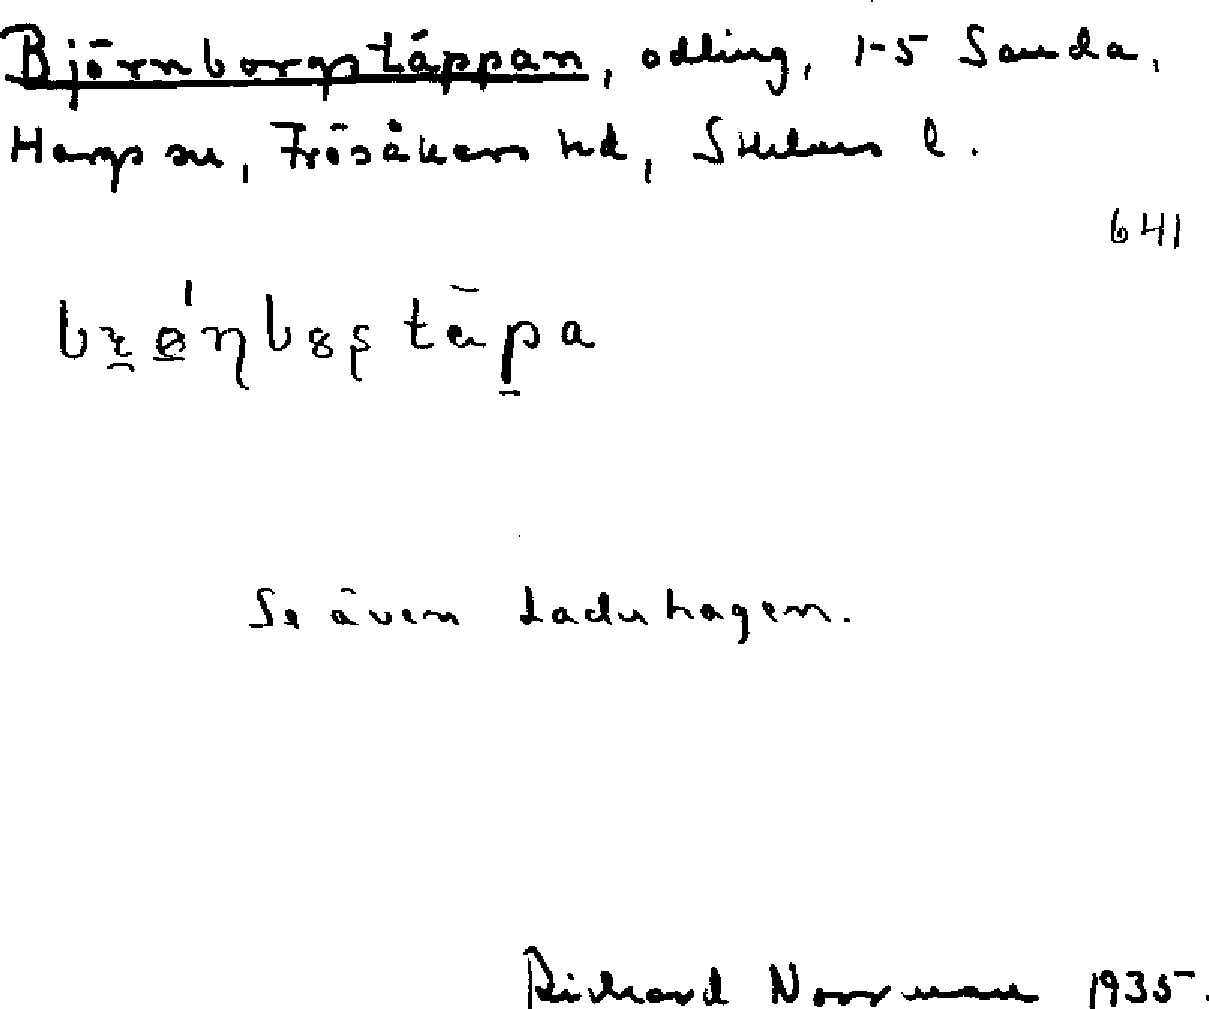 Björnborgstäppan, odling, 1-5 Sanda,
Hargs sn, Frösåkers hd, Sthlms l.
641
Se även Laduhagen.
Richard Norrman 1935.